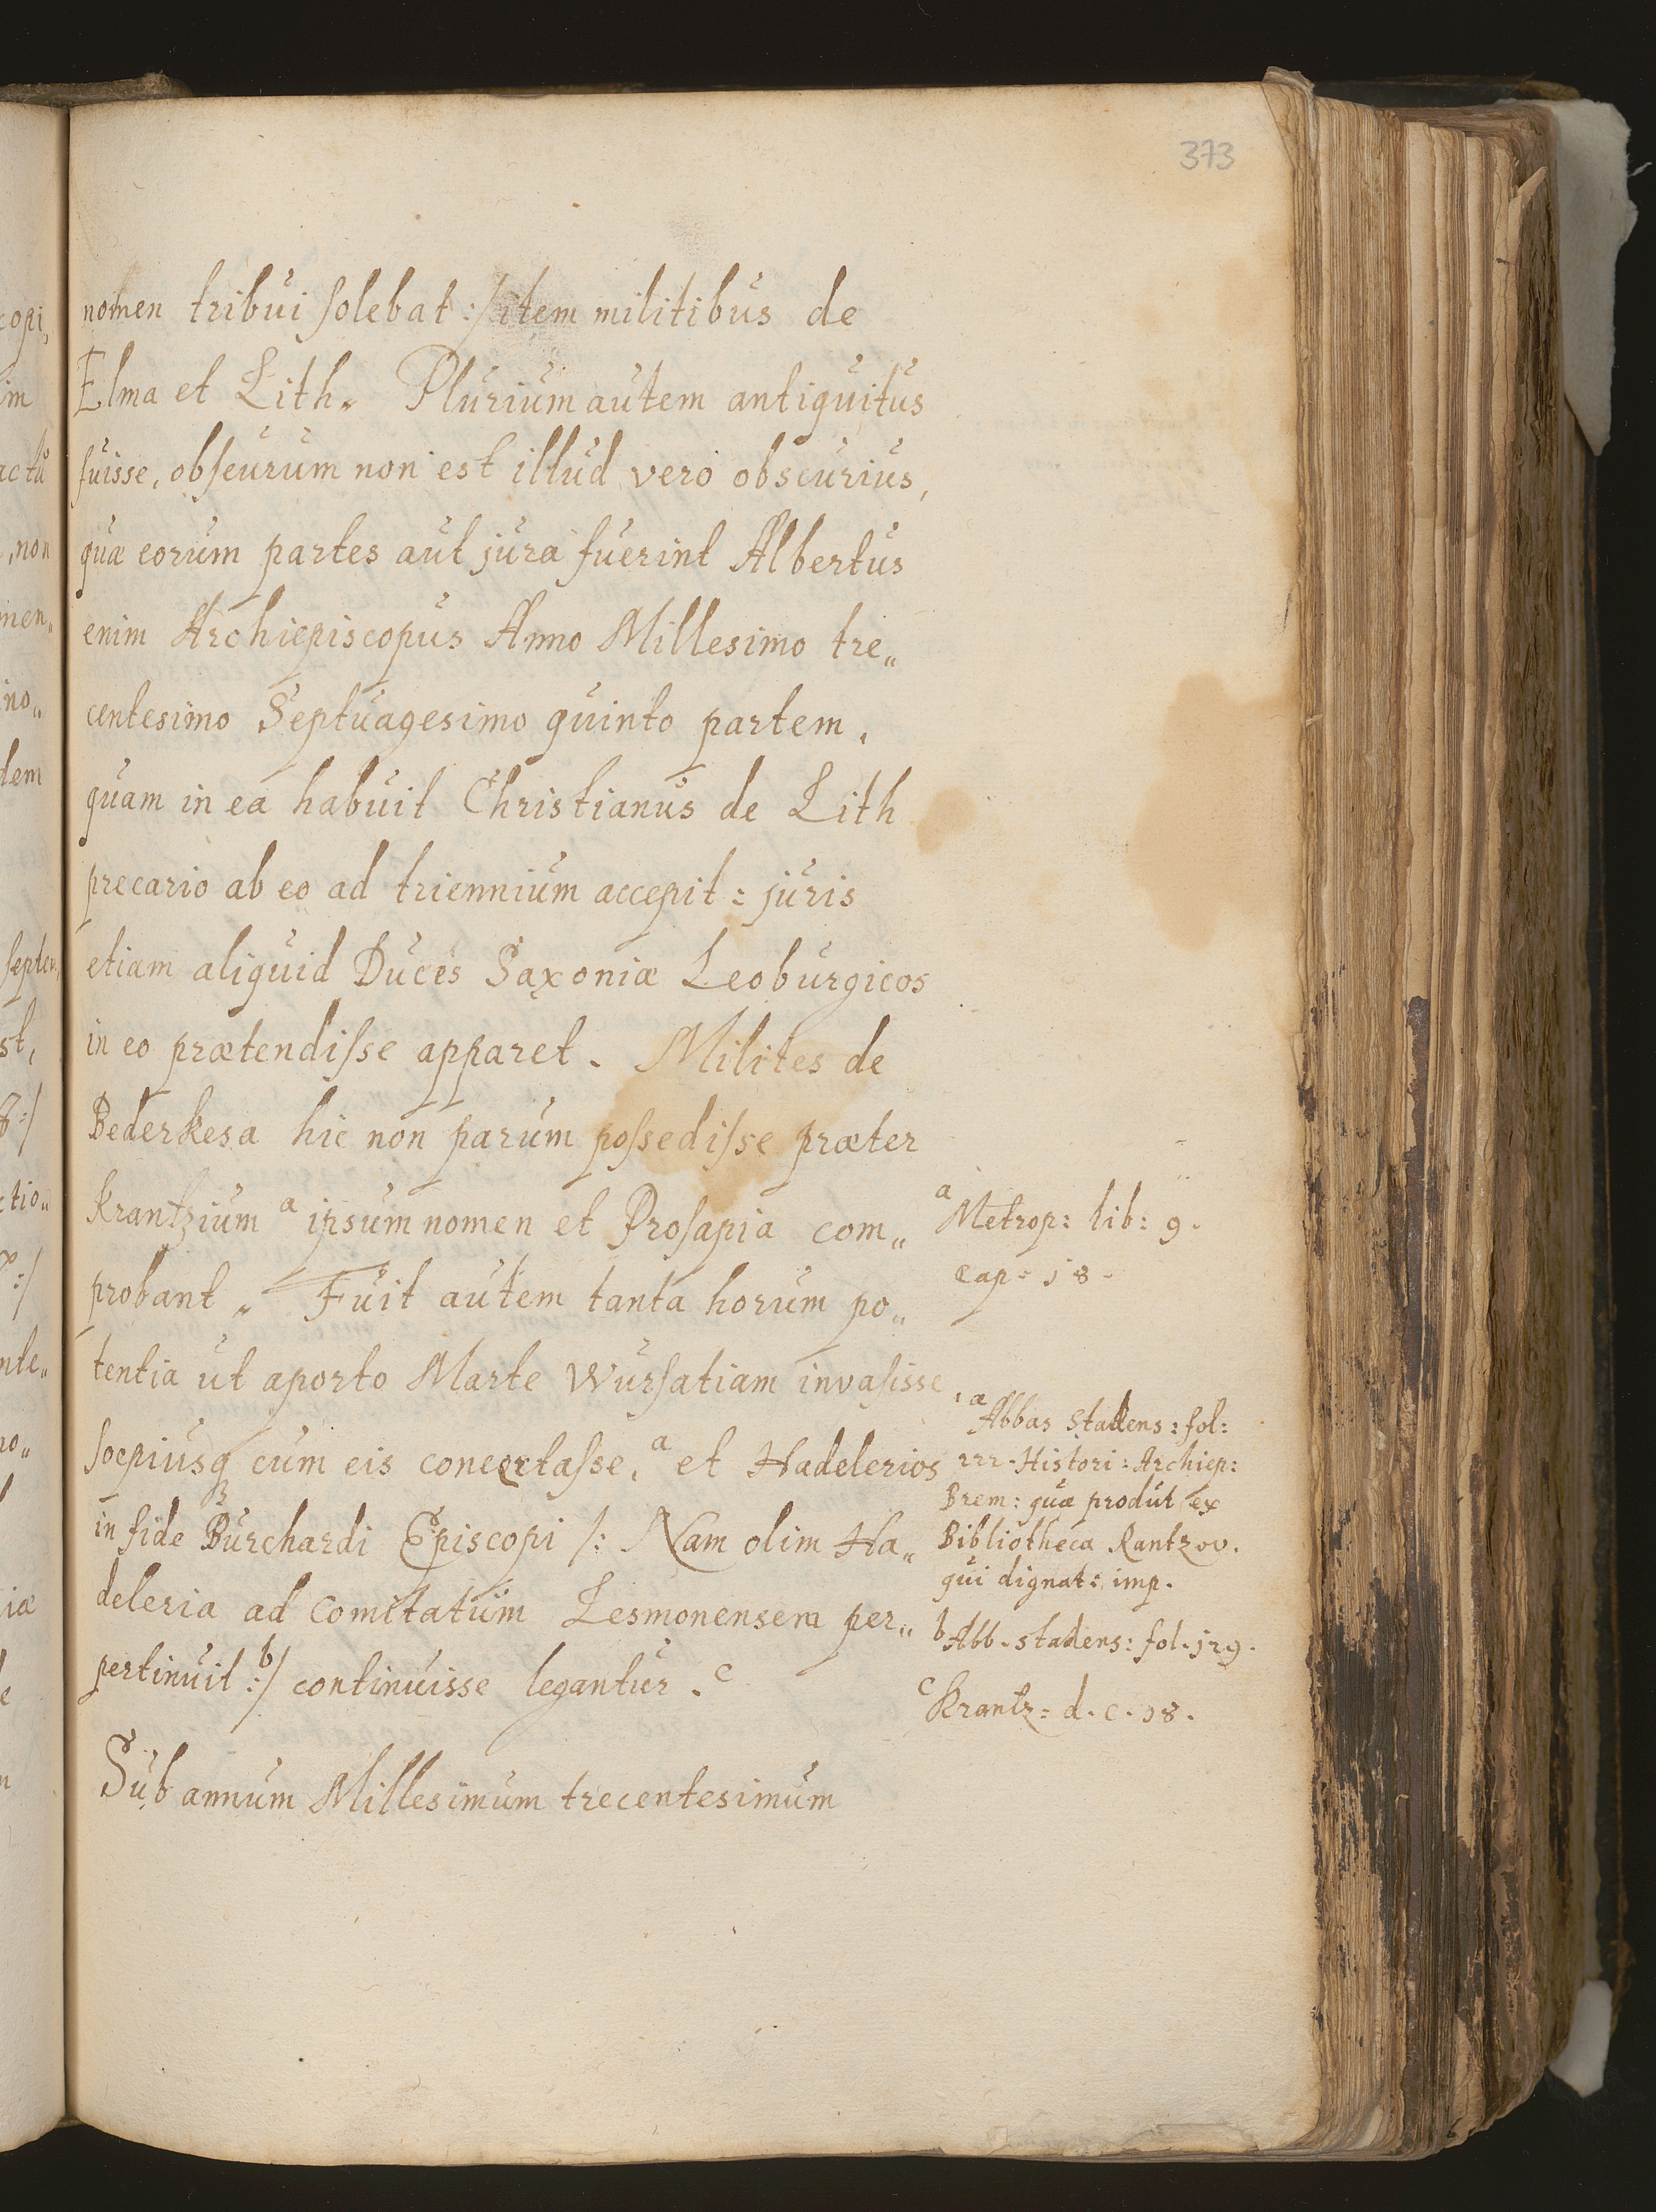 373
nomen tribui solebat :/ item militibus de
Elma et Lith„ Plurium autem antiquitus
fuisse, obscurum non est illud vero obscurius,
quæ eorum partes aut jura fuerint Albertus
enim Archiepiscopus Anno Millesimo tre„
centesimo Septuagesimo quinto partem,
quam in ea habuit Christianus de Lith
precario ab eo ad triennium accepit : juris
etiam aliquid Duces Saxoniæ Leoburgicos
in eo prætendisse apparet. Milites de
Bederkesa hic non parum possedisse præter
Krantzium a ipsum nomen et Prosapia com„
probant„ Fuit autem tanta horum po„
tentia ut aporto Marte Wursatiam invasisse,
sœpiusq cum eis concertasse, a et Hadelerios
in fide Burchardi Episcopi /: Nam olim Ha„
deleria ad Comitatum Lesmonensem per„
pertinuit b :/ continuisse legantur. c
Sub annum Millesimum trecentesimum
a Metrop: lib: 9.
cap: 18.
a Abbas Stadens: fol:
222. Histori: Archiep:
Brem: quæ produt ex
Bibliotheca Rantzov.
qui dignat: imp.
b Abb. stadens: fol. 129.
c Krantz: d. c. 18.